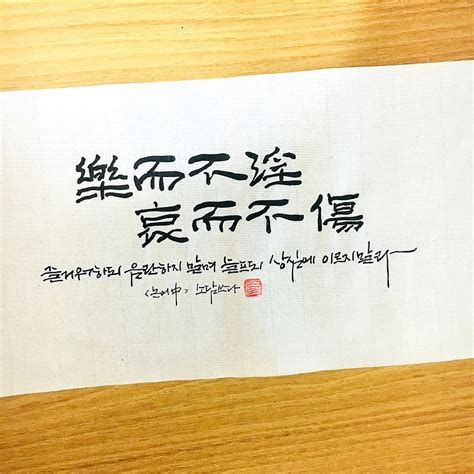 樂而不淫
哀而不傷
즐거워하되 음란하지 말며 슬프되 상함에 이르지말라
<논어中> 쓰다